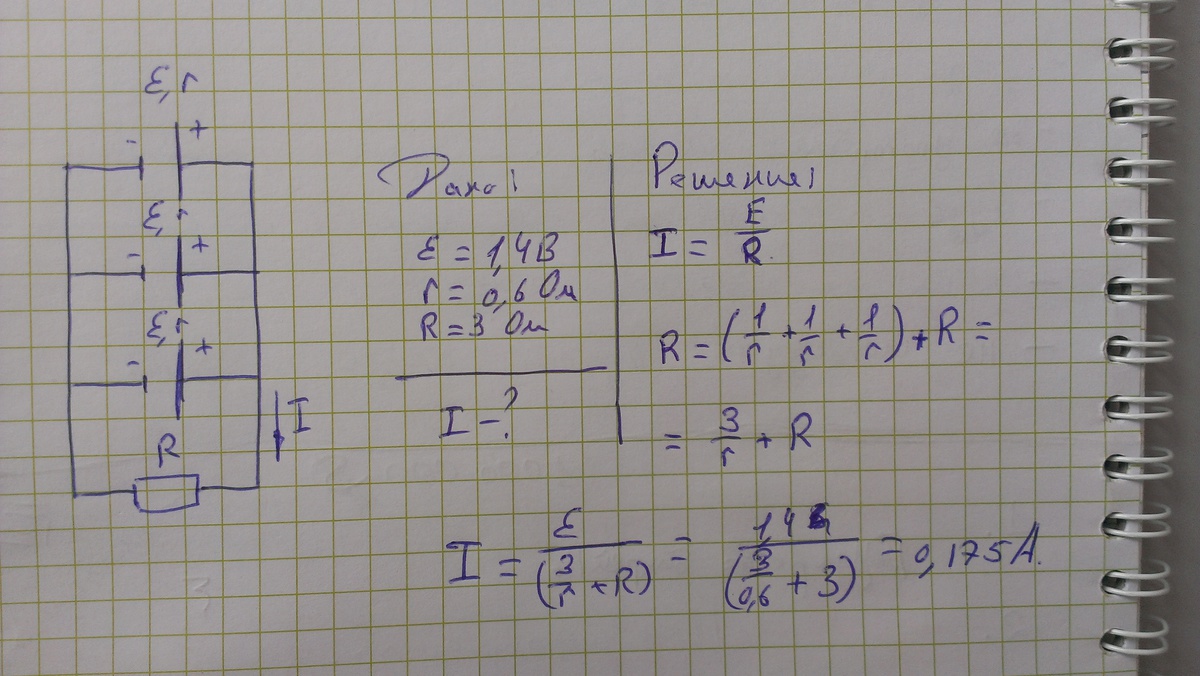 ε, r
- +
ε, r
- +
ε, r
- +
R
I
Дано:
ε = 1,4В
r = 0,6 Ом
R = 3 Ом
I - ?
Решение:
I = E/R.
R = (1/r + 1/r + 1/r) + R =
= 3/r + R
I = ε/(3/r + R) = 1,4/(3/0,6 + 3) = 0,175А.